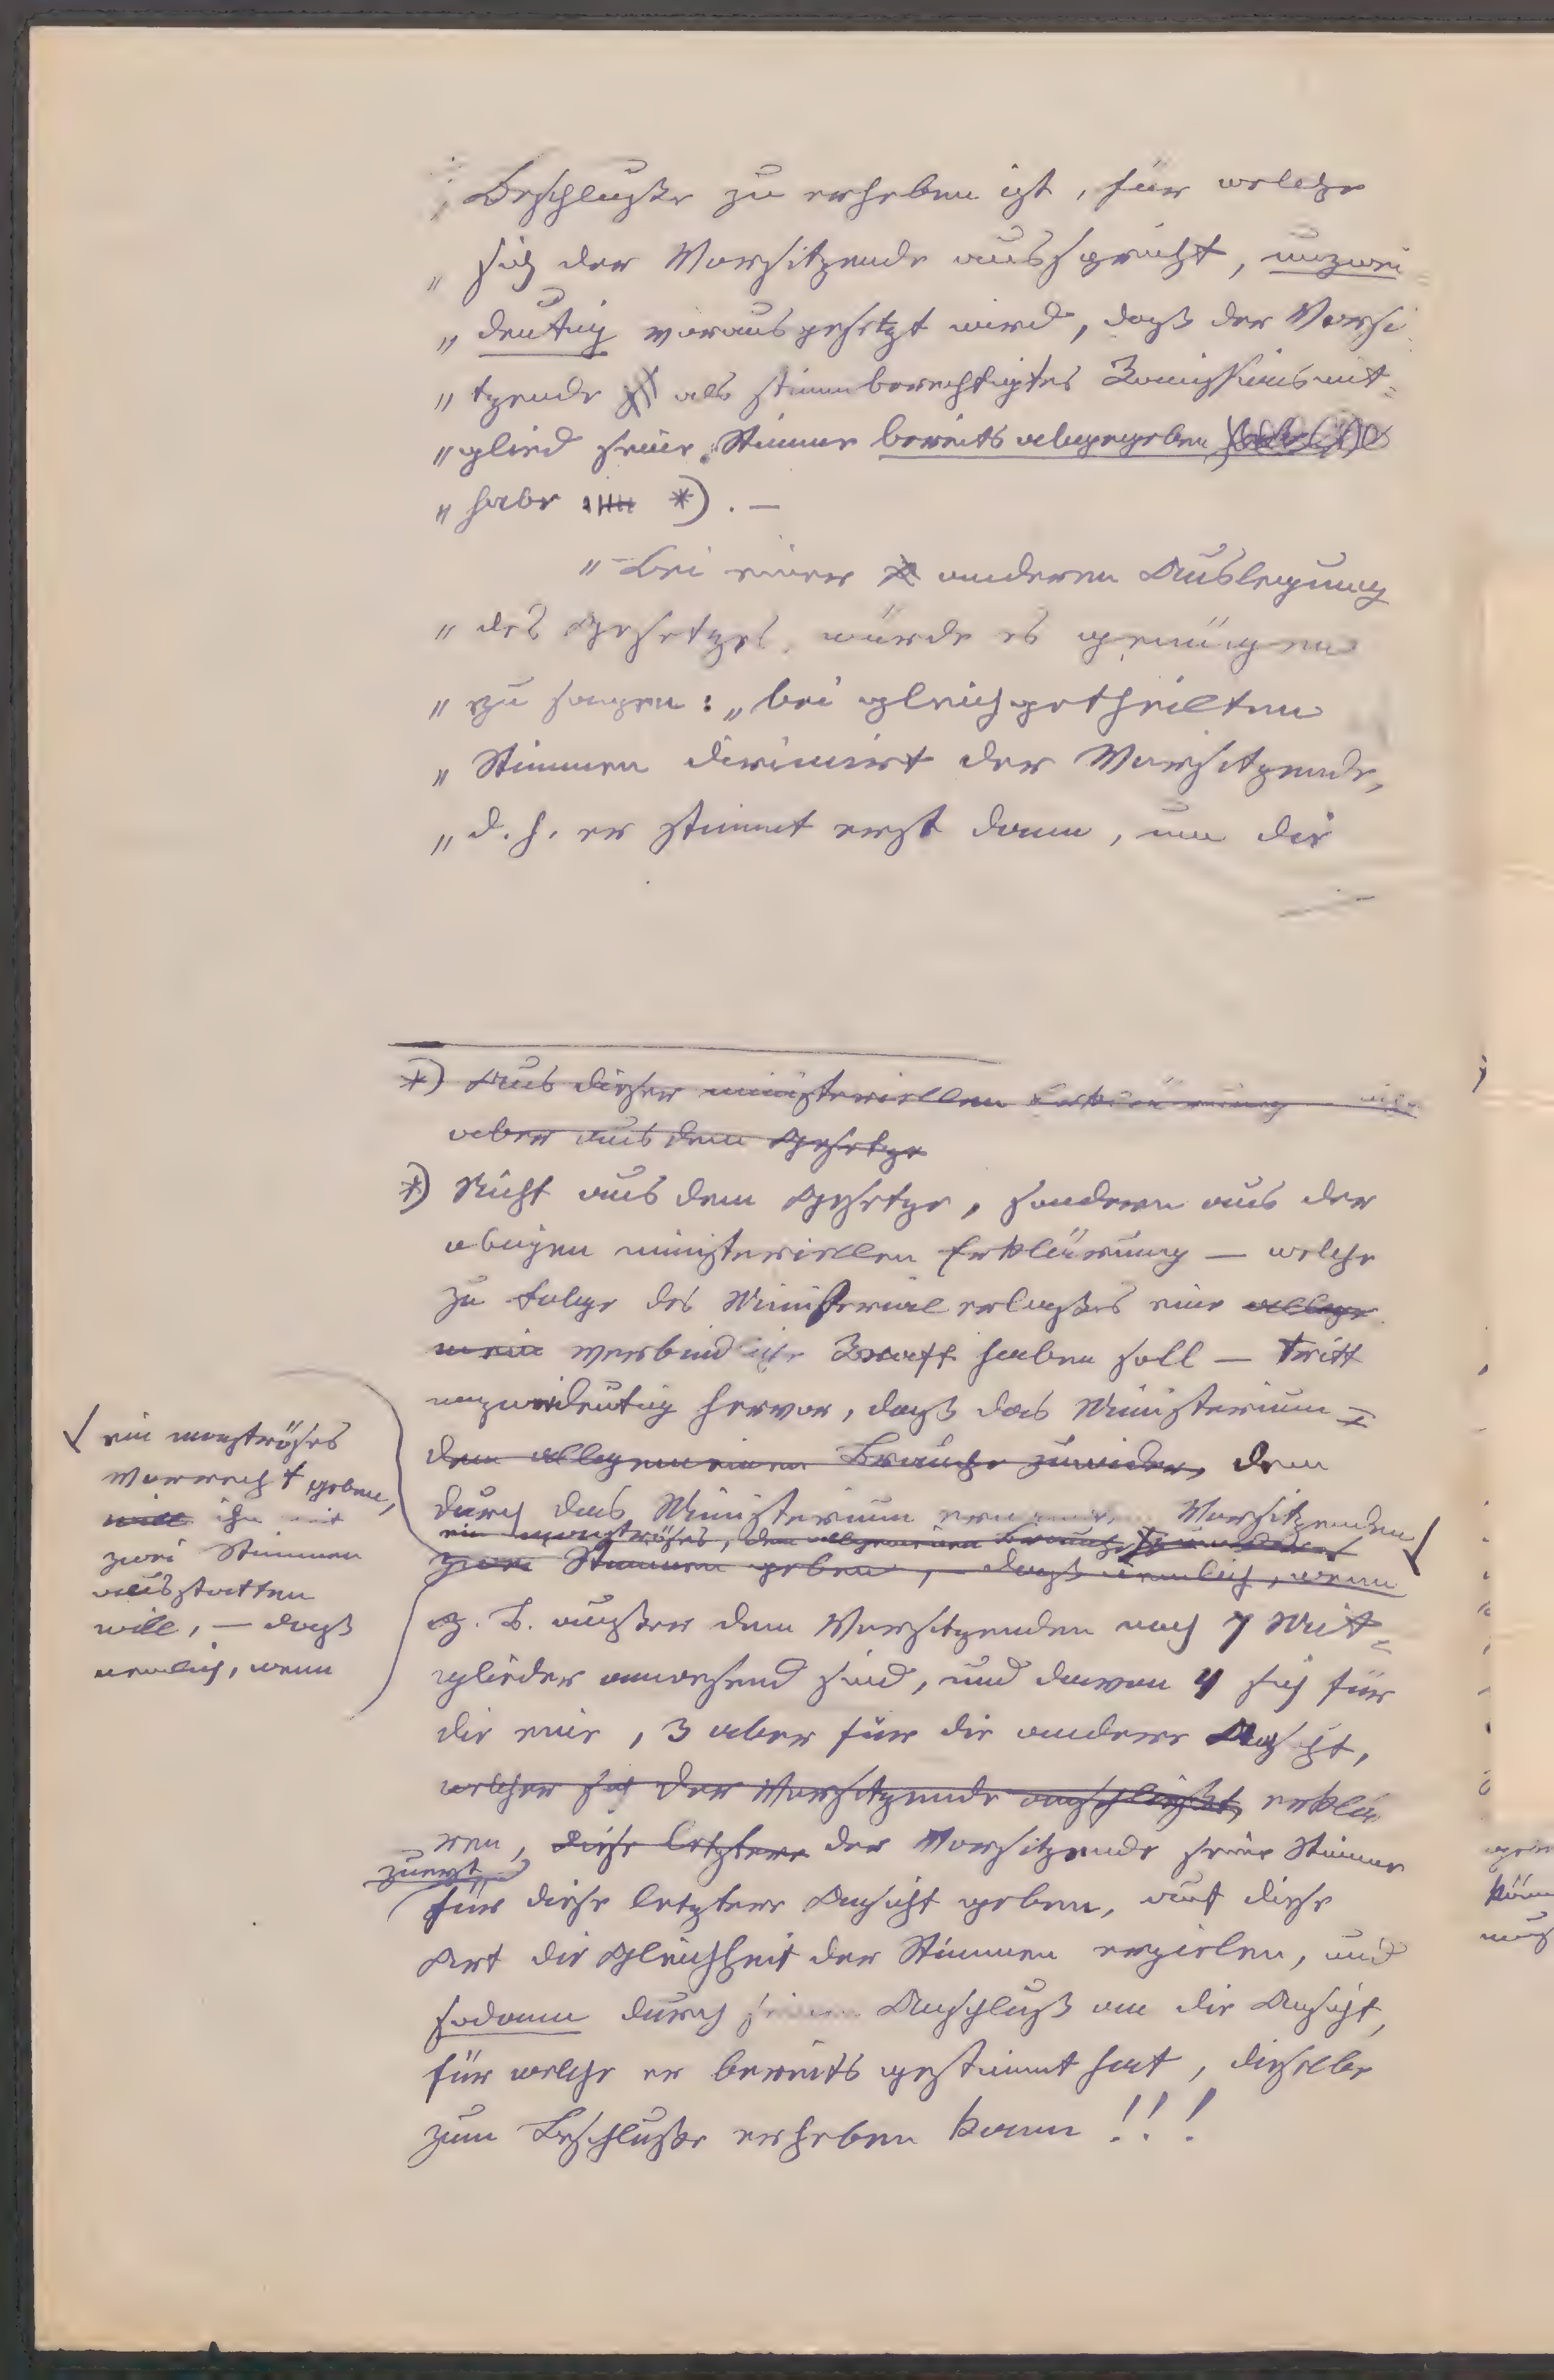 „ Beschluße zu erheben ist, für welche
„ sich der Vorsitzende ausspricht, unzwei
„ deutig vorausgesetzt wird, daß der Vorsi
„ tzende als stimmberechtigtes Komissionsmit=
„ glied seine Stimme bereits abgegeben
„ habe *). —
„ Bei einer anderen Auslegung
„ des Gesetzes, würde es genügen
„ zu sagen: „bei gleichgetheilten
„ Stimmen dirimirt der Vorsitzende,
„ d. h. er stimmt erst dann, um die
*) Aus dieser ministeriellen Erklärung
aber aus dem Gesetze
*) Nicht aus dem Gesetze, sondern aus der
obigen ministeriellen Erklärung — welche
zu Folge des Ministerialerlaßes eine allge
mein verbindliche Kraft haben soll — tritt
unzweideutig hervor, daß das Ministerium
dem allgemeinen Brauche zuwider, dem
durch das Ministerium ernannten Vorsitzenden
ein monströses, dem allgemeinen Brauche
zwei Stimmen geben, — daß nemlich, wenn
ein monströses
Vorrecht geben,
will ihn mit
zwei Stimmen
ausstatten
will, — daß
nemlich, wenn
z. B. außer dem Vorsitzenden noch 7 Mit=
glieder anwesend sind, und davon 4 sich für
die eine, 3 aber für die andere Ansicht,
welcher sich der Vorsitzende anschließt, erklä
ren, diese letztere der Vorsitzende seine Stimme
zuerst
für diese letztere Ansicht geben, auf diese
Art die Gleichheit der Stimmen erzielen, und
sodann durch seinen Anschluß an die Ansicht,
für welche er bereits gestimmt hat, dieselbe
zum Beschluße erheben kann!!!